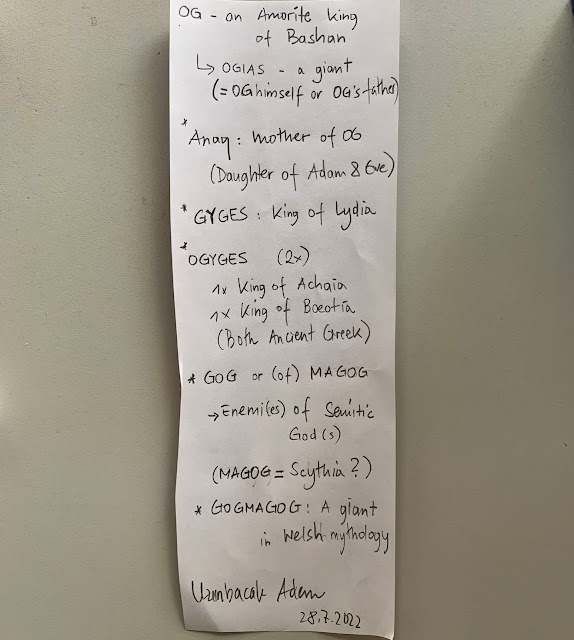 OG - an Amorite King
of Bashan
↳ OGIAS - a giant
(= OG himself or OG's father)
* Anaq: mother of OG
(Daughter of Adam & Eve)
* GYGES: King of Lydia
* OGYGES (2x)
1x King of Achaia
1x King of Boeotia
(Both Ancient Greek)
* GOG or (of) MAGOG
→ Enemi(es) of Semitic
God(s)
(MAGOG = Scythia?)
* GOGMAGOG: A giant
in Welsh mythology
Uzunbacak Adem
28.7.2022